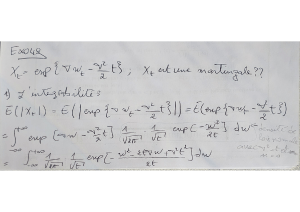 Exo42
X_t = exp{∇w_t - ∇²/2 t}, X_t est une martingale??
1) L'intégrabilité
E(|X_t|) = E(|exp{∇w_t - ∇²/2 t}|) = E(exp{∇w_t - ∇²/2 t})
= ∫_{-∞}^{+∞} exp{∇w - ∇²/2 t} 1/√2π · 1/√t · exp{-w²/2t} dw
= ∫_{-∞}^{+∞} 1/√2π · 1/√t · exp[-(w² - 2t∇w + ∇²t²)/2t] dw